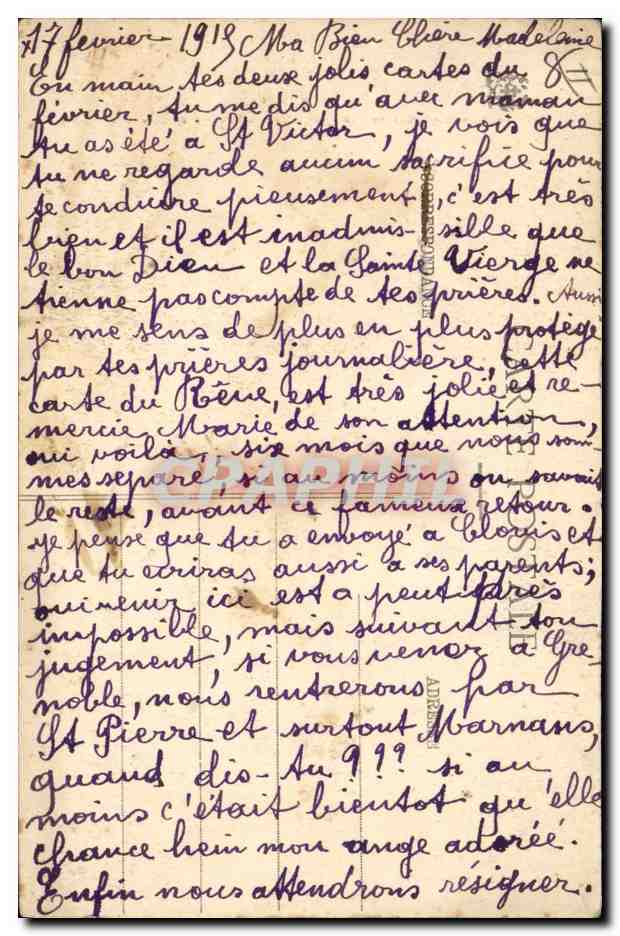 17 fevrier 1915 Ma Bien Chère Madeleine
En main tes deux jolis cartes du 8
février, tu me dis qu'avec maman
tu as été à St Victor, je vois que
tu ne regarde aucun sacrifice pour
te conduire pieusement, c'est très
bien et il est inadmis-sille que
le bon Dieu et la Sainte Vierge ne
tienne pas compte de tes prières. Aussi
je me sens de plus en plus protégé
par tes prières journalière, cette
carte du Rêve, est très jolie et re-
mercie Marie de son attention,
oui voilà, six mois que nous som-
mes separé, si au moins on savait
le reste, avant ce fameux retour.
je pense que tu a envoyé à Clovis et
que tu ecriras aussi a ses parents;
oui venir ici est a peut près
impossible, mais suivant ton
jugement, si vous venez à Gre-
noble, nous rentrerons par
St Pierre et surtout Marnans,
quand dis-tu ??? si au
moins c'était bientot qu'elle
chance hein mon ange adoréé.
Enfin nous attendrons résigner.
CORRESPONDANCE
CARTE POSTALE
ADRESSE
CPAPHIL